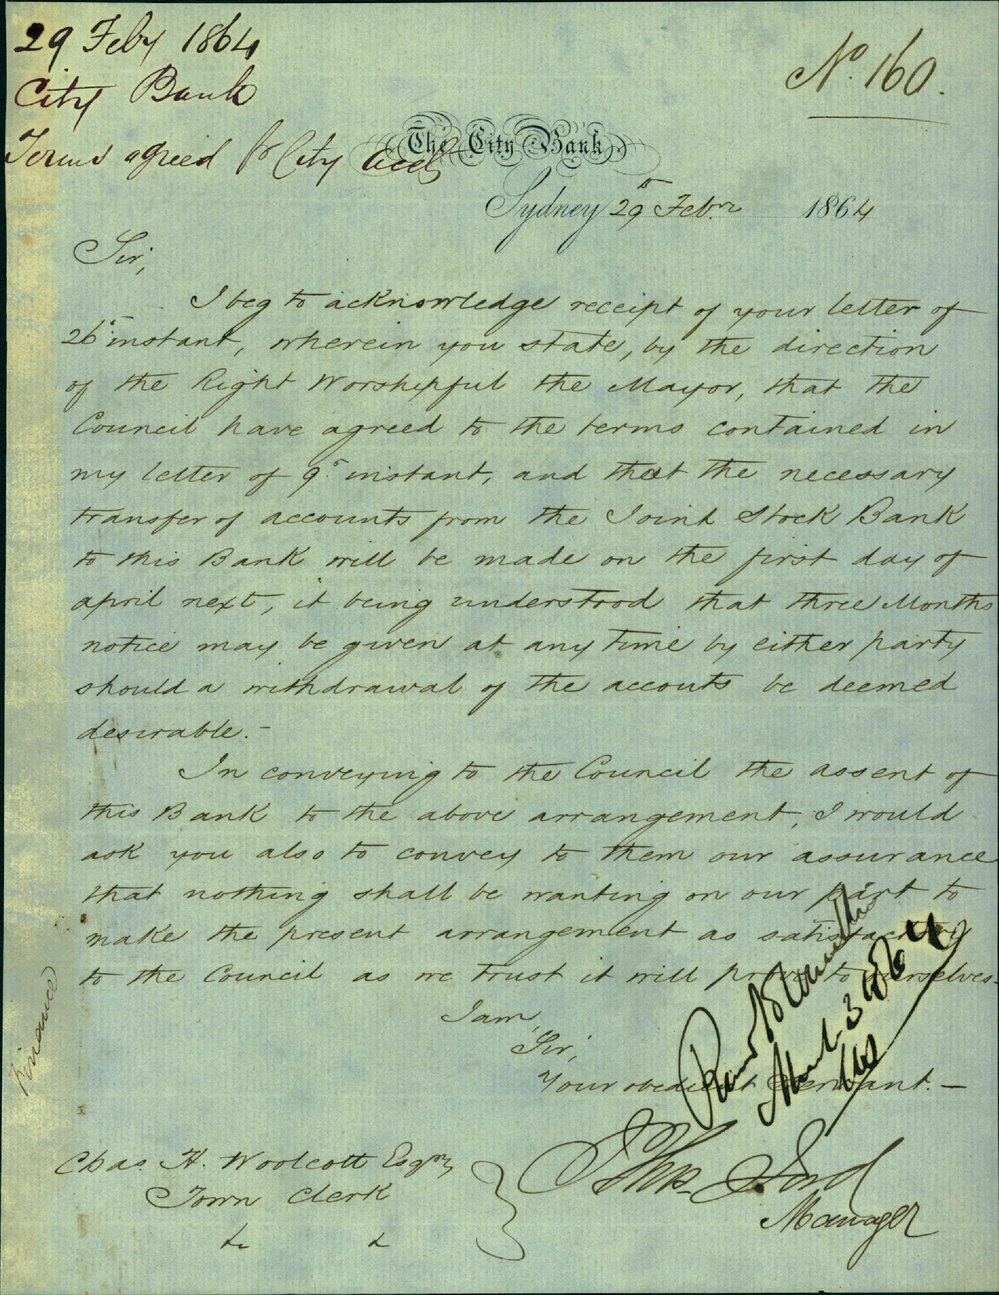 29 Feby 1864
City Bank
Terms agreed for City Acct
No. 160.
The City Bank
Sydney 29th Febry 1864
Sir,
I beg to acknowledge receipt of your letter of
26th instant, wherein you state, by the direction
of the Right Worshipful the Mayor, that the
Council have agreed to the terms contained in
my letter of 9th instant, and that the necessary
transfer of accounts from the Joint Stock Bank
to this Bank will be made on the first day of
april next, it being understood that three Months
notice may be given at any time by either party
should a withdrawal of the accouts be deemed
desirable.-
In conveying to the Council the assent of
this Bank to the above arrangement, I would
ask you also to convey to them our assurance
that nothing shall be wanting on our part to
make the present arrangement as satisfactory
to the Council as we trust it will prove to ourselves.
I am,
Sir,
Your obedient Servant.-
March 3 1864
Finance
Chas. H. Woolcott Esqre
Town Clerk
Ford
Manager